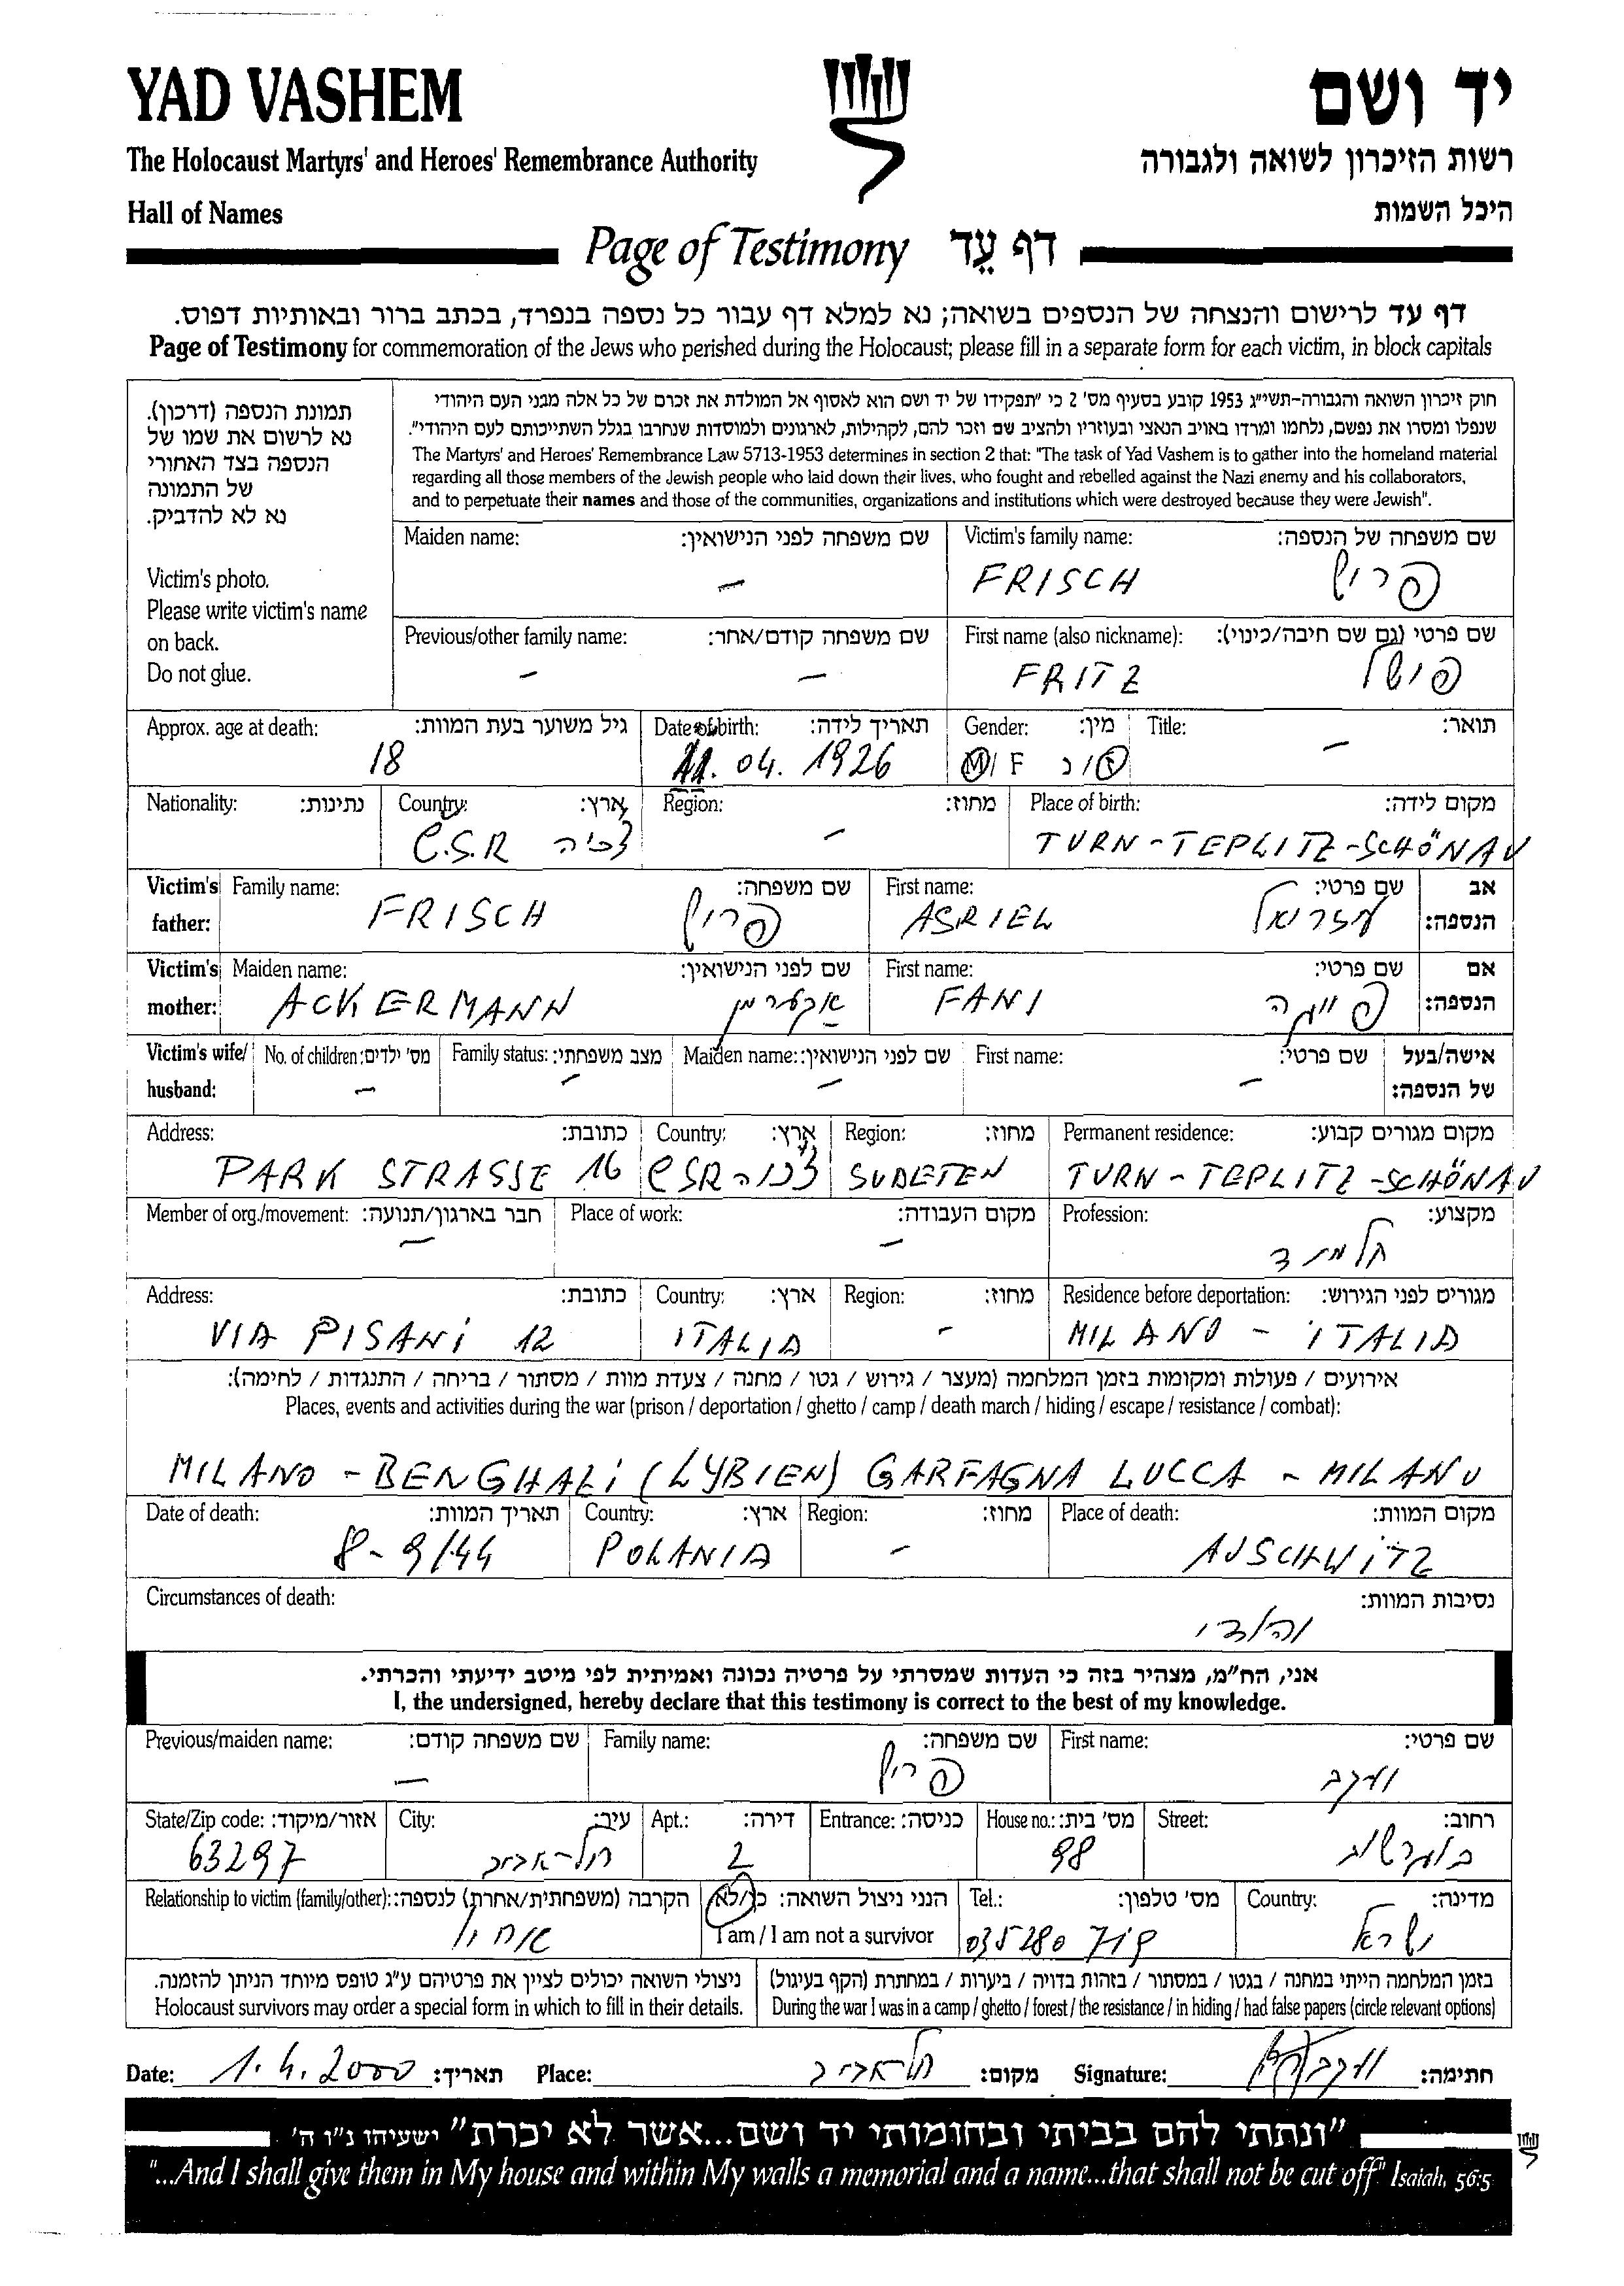 YAD VASHEM יד ושם
The Holocaust Martyrs' and Heroes' Remembrance Authority רשות הזיכרון לשואה ולגבורה
Hall of Names היכל השמות
Page of Testimony דף עֵד
דף עד לרישום והנצחה של הנספים בשואה; נא למלא דף עבור כל נספה בנפרד, בכתב ברור ובאותיות דפוס.
Page of Testimony for commemoration of the Jews who perished during the Holocaust; please fill in a separate form for each victim, in block capitals
תמונת הנספה (דרכון).
נא לרשום את שמו של
הנספה בצד האחורי
של התמונה
נא לא להדביק.
Victim's photo.
Please write victim's name
on back.
Do not glue.
חוק זיכרון השואה והגבורה-תשי"ג 1953 קובע בסעיף מס' 2 כי "תפקידו של יד ושם הוא לאסוף אל המולדת את זכרם של כל אלה מבני העם היהודי
שנפלו ומסרו את נפשם, נלחמו ומרדו באויב הנאצי ובעוזריו ולהציב שם וזכר להם, לקהילות, לארגונים ולמוסדות שנחרבו בגלל השתייכותם לעם היהודי".
The Martyrs' and Heroes' Remembrance Law 5713-1953 determines in section 2 that: "The task of Yad Vashem is to gather into the homeland material
regarding all those members of the Jewish people who laid down their lives, who fought and rebelled against the Nazi enemy and his collaborators,
and to perpetuate their names and those of the communities, organizations and institutions which were destroyed because they were Jewish".
Maiden name: שם משפחה לפני הנישואין: Victim's family name: שם משפחה של הנספה:
– FRISCH פריש
Previous/other family name: שם משפחה קודם/אחר: First name (also nickname): שם פרטי (גם שם חיבה/כינוי):
– – FRITZ
Approx. age at death: גיל משוער בעת המוות: Date of birth: תאריך לידה: Gender: מין: Title: תואר:
18 11. 04. 1926 M/F ז/נ –
Nationality: נתינות: Country: ארץ: Region: מחוז: Place of birth: מקום לידה:
C.S.R צ'כיה – TURN-TEPLITZ-SCHÖNAU
Victim's father: Family name: שם משפחה: First name: שם פרטי: אב הנספה:
FRISCH פריש ASRIEL עזריאל
Victim's mother: Maiden name: שם לפני הנישואין: First name: שם פרטי: אם הנספה:
ACKERMANN אקערמן FANI פייגה
Victim's wife/ husband: No. of children: מס' ילדים: Family status: מצב משפחתי: Maiden name: שם לפני הנישואין: First name: שם פרטי: אישה/בעל של הנספה:
– – – –
Address: כתובת: Country: ארץ: Region: מחוז: Permanent residence: מקום מגורים קבוע:
PARK STRASSE 16 CSR צ'כיה SUDETEN TURN-TEPLITZ-SCHÖNAU
Member of org./movement: חבר בארגון/תנועה: Place of work: מקום העבודה: Profession: מקצוע:
– – תלמיד
Address: כתובת: Country: ארץ: Region: מחוז: Residence before deportation: מגורים לפני הגירוש:
VIA PISANI 12 ITALIA – MILANO - ITALIA
אירועים / פעולות ומקומות בזמן המלחמה (מעצר / גירוש / גטו / מחנה / צעדת מוות / מסתור / בריחה / התנגדות / לחימה):
Places, events and activities during the war (prison / deportation / ghetto / camp / death march / hiding / escape / resistance / combat):
MILANO - BENGHALI (LYBIEN) GARFAGNA LUCCA - MILANO
Date of death: תאריך המוות: Country: ארץ: Region: מחוז: Place of death: מקום המוות:
8-9/44 POLANIA – AUSCHWITZ
Circumstances of death: נסיבות המוות:
אני, הח"מ, מצהיר בזה כי העדות שמסרתי על פרטיה נכונה ואמיתית לפי מיטב ידיעתי והכרתי.
I, the undersigned, hereby declare that this testimony is correct to the best of my knowledge.
Previous/maiden name: שם משפחה קודם: Family name: שם משפחה: First name: שם פרטי:
– פריש יעקב
State/Zip code: אזור/מיקוד: City: עיר: Apt.: דירה: Entrance: כניסה: House no.: מס' בית: Street: רחוב:
63297 תל-אביב 2 98 בוגרשוב
Relationship to victim (family/other): הקרבה (משפחתית/אחרת) לנספה: הנני ניצול השואה: כן/לא I am / I am not a survivor Tel.: מס' טלפון: Country: מדינה:
ישראל
ניצולי השואה יכולים לציין את פרטיהם ע"ג טופס מיוחד הניתן להזמנה. בזמן המלחמה הייתי במחנה / בגטו / במסתור / בזהות בדויה / ביערות / במחתרת (הקף בעיגול)
Holocaust survivors may order a special form in which to fill in their details. During the war I was in a camp / ghetto / forest / the resistance / in hiding / had false papers (circle relevant options)
Date: 1.4.2000 תאריך: Place: תל אביב מקום: Signature: חתימה:
"ונתתי להם בביתי ובחומותי יד ושם...אשר לא יכרת" ישעיהו נ"ו ה'
"...And I shall give them in My house and within My walls a memorial and a name...that shall not be cut off" Isaiah, 56:5